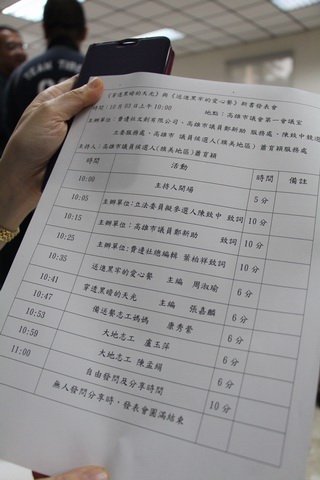 《穿透黑暗的天光》與《送進黑牢的愛心餐》新書發表會
時間：10月03日上午10:00 地點：高雄市議會第一會議室
主辦單位：費邊社文創有限公司、高雄市議員鄭新助 服務處、陳致中競選
立委服務處、高雄市 議員候選人(旗美地區) 蕭育穎服務處
主持人：高雄市議員候選人(旗美地區) 蕭育穎
時間 活動 時間 備註
10:00 主持人開場 5分
10:05 主辦單位:立法委員擬參選人陳致中 致詞 10分
10:15 主辦單位：高雄市議員鄭新助 致詞 10分
10:25 主辦單位:費邊社總編輯 葉柏祥致詞 10分
10:35 送進黑牢的愛心餐 主編 周淑瑜 6分
10:41 穿透黑暗的天光 主編 張嘉麟 6分
10:47 備送餐志工媽媽 康秀鶯 6分
10:53 大地志工 盧玉萍 6分
10:59 大地志工 陳孟絹 6分
11:00 自由發問及分享時間 10分
無人發問分享時，發表會圓滿結束